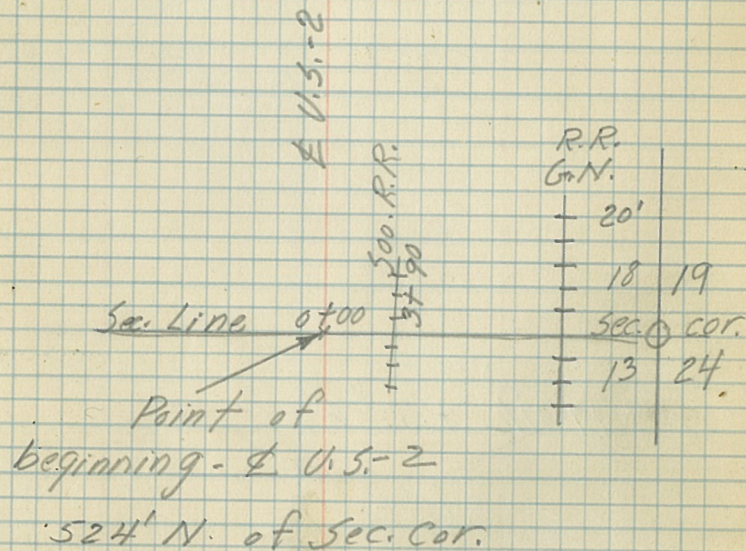 ℄ U.S.-2
500. R.R.
3+90
R.R.
G.N.
20'
18 19
Sec. Line 0+00 Sec. cor.
13 24
Point of
beginning - ℄ U.S.-2
524' N. of Sec. Cor.